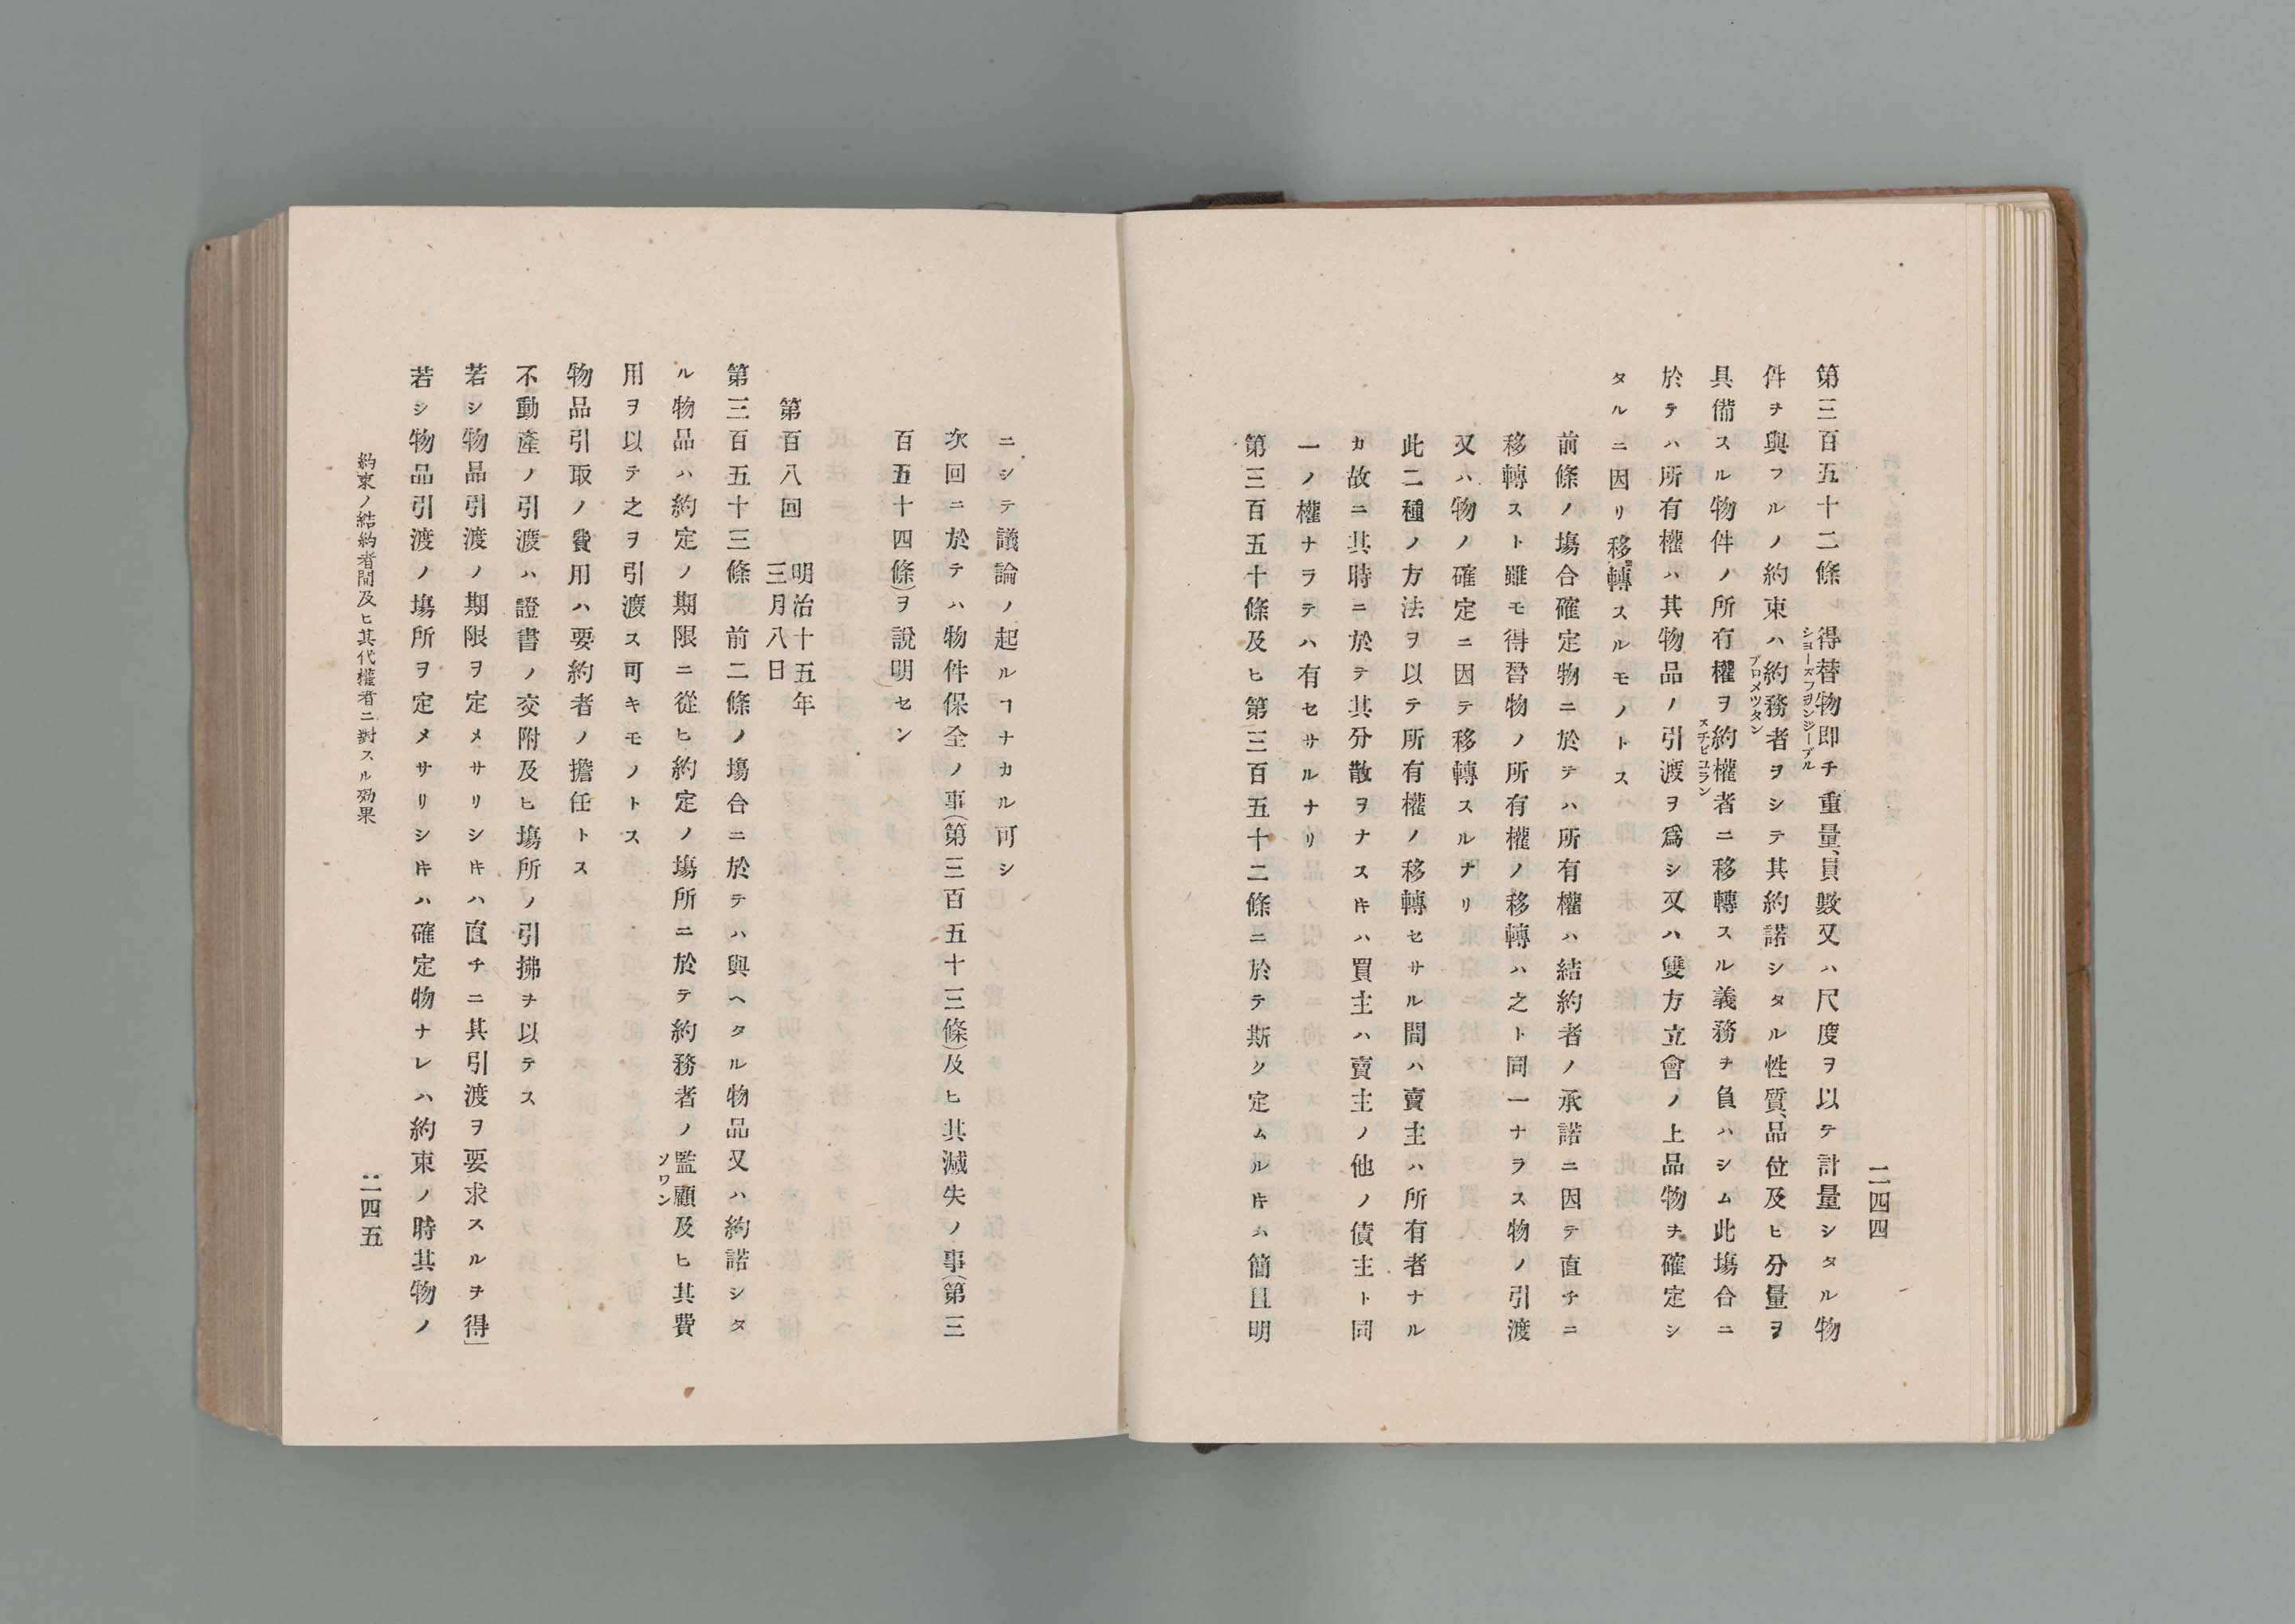 二四四
第三百五十二條　得替物即チ重量、員數又ハ尺度ヲ以テ計量シタル物
ショーズフヲンジーブル
件ヲ與フルノ約束ハ約務者ヲシテ其約諾シタル性質、品位及ヒ分量ヲ
プロメツタン
具備スル物件ノ所有權ヲ約權者ニ移轉スル義務ヲ負ハシム此塲合ニ
スチピユラン
於テハ所有權ハ其物品ノ引渡ヲ爲シ又ハ雙方立會ノ上品物ヲ確定シ
タルニ因リ移轉スルモノトス
前條ノ塲合確定物ニ於テハ所有權ハ結約者ノ承諾ニ因テ直チニ
移轉スト雖モ得替物ノ所有權ノ移轉ハ之ト同一ナラス物ノ引渡
又ハ物ノ確定ニ因テ移轉スルナリ
此二種ノ方法ヲ以テ所有權ノ移轉セサル間ハ賣主ハ所有者ナル
カ故ニ其時ニ於テ其分散ヲナスㇳキハ買主ハ賣主ノ他ノ債主ト同
一ノ權ナラテハ有セサルナリ
第三百五十條及ヒ第三百五十二條ニ於テ斯ク定ムルㇳキハ簡且明
ニシテ議論ノ起ルヿナカル可シ
次回ニ於テハ物件保全ノ事(第三百五十三條)及ヒ其減失ノ事(第三
百五十四條)ヲ說明セン
第百八回　明治十五年
三月八日
第三百五十三條　前二條ノ塲合ニ於テハ與ヘタル物品又ハ約諾シタ
ル物品ハ約定ノ期限ニ從ヒ約定ノ塲所ニ於テ約務者ノ監顧及ヒ其費
ソワン
用ヲ以テ之ヲ引渡ス可キモノトス
物品引取ノ費用ハ要約者ノ擔任トス
不動產ノ引渡ハ證書ノ交附及ヒ塲所ノ引拂ヲ以テス
若シ物品引渡ノ期限ヲ定メサリシㇳキハ直チニ其引渡ヲ要求スルヲ得」
若シ物品引渡ノ塲所ヲ定メサリシㇳキハ確定物ナレハ約束ノ時其物ノ
約束ノ結約者間及ヒ其代權者ニ對スル効果
二四五